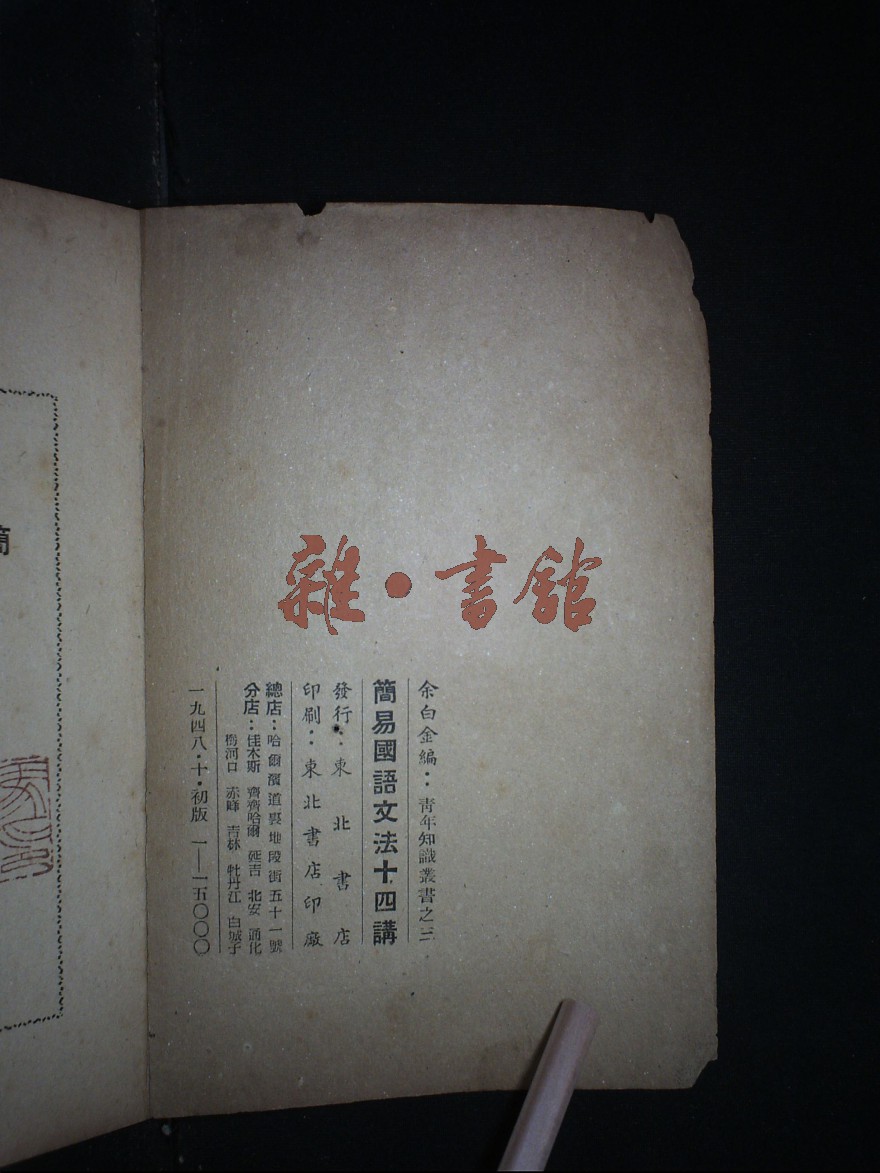 雜·書館
余白金編：青年知識叢書之三
簡易國語文法十四講
發行：東北書店
印刷：東北書店印廠
總店：哈爾濱道裏地段街五十一號
分店：佳木斯 齊齊哈爾 延吉 北安 通化
樹河口 赤峰 吉林 牡丹江 白城子
一九四八·十·初版 一—一五〇〇〇
簡